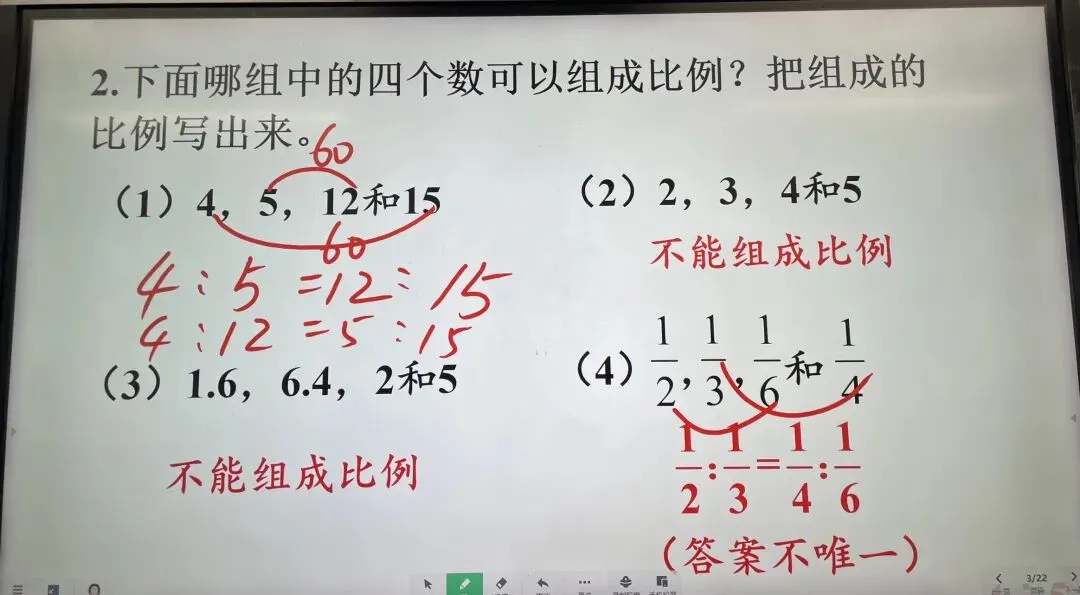 2.下面哪组中的四个数可以组成比例？把组成的
比例写出来。
60
（1）4，5，12和15
60
4:5=12:15
4:12=5:15
（2）2，3，4和5
不能组成比例
（3）1.6，6.4，2和5
不能组成比例
（4）1/2，1/3，1/6和1/4
1/2:1/3=1/4:1/6
（答案不唯一）
3/22